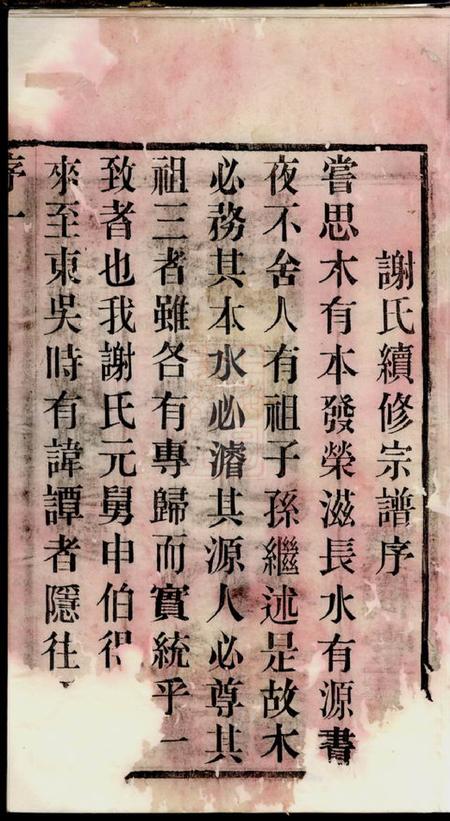 謝氏續修宗譜序
嘗思木有本發榮滋長水有源晝
夜不舍人有祖子孫繼述是故木
必務其本水必濬其源人必尊其
祖三者雖各有專歸而實統乎一
致者也我謝氏元舅申伯
來至東吳時有諱譚者隱
序一